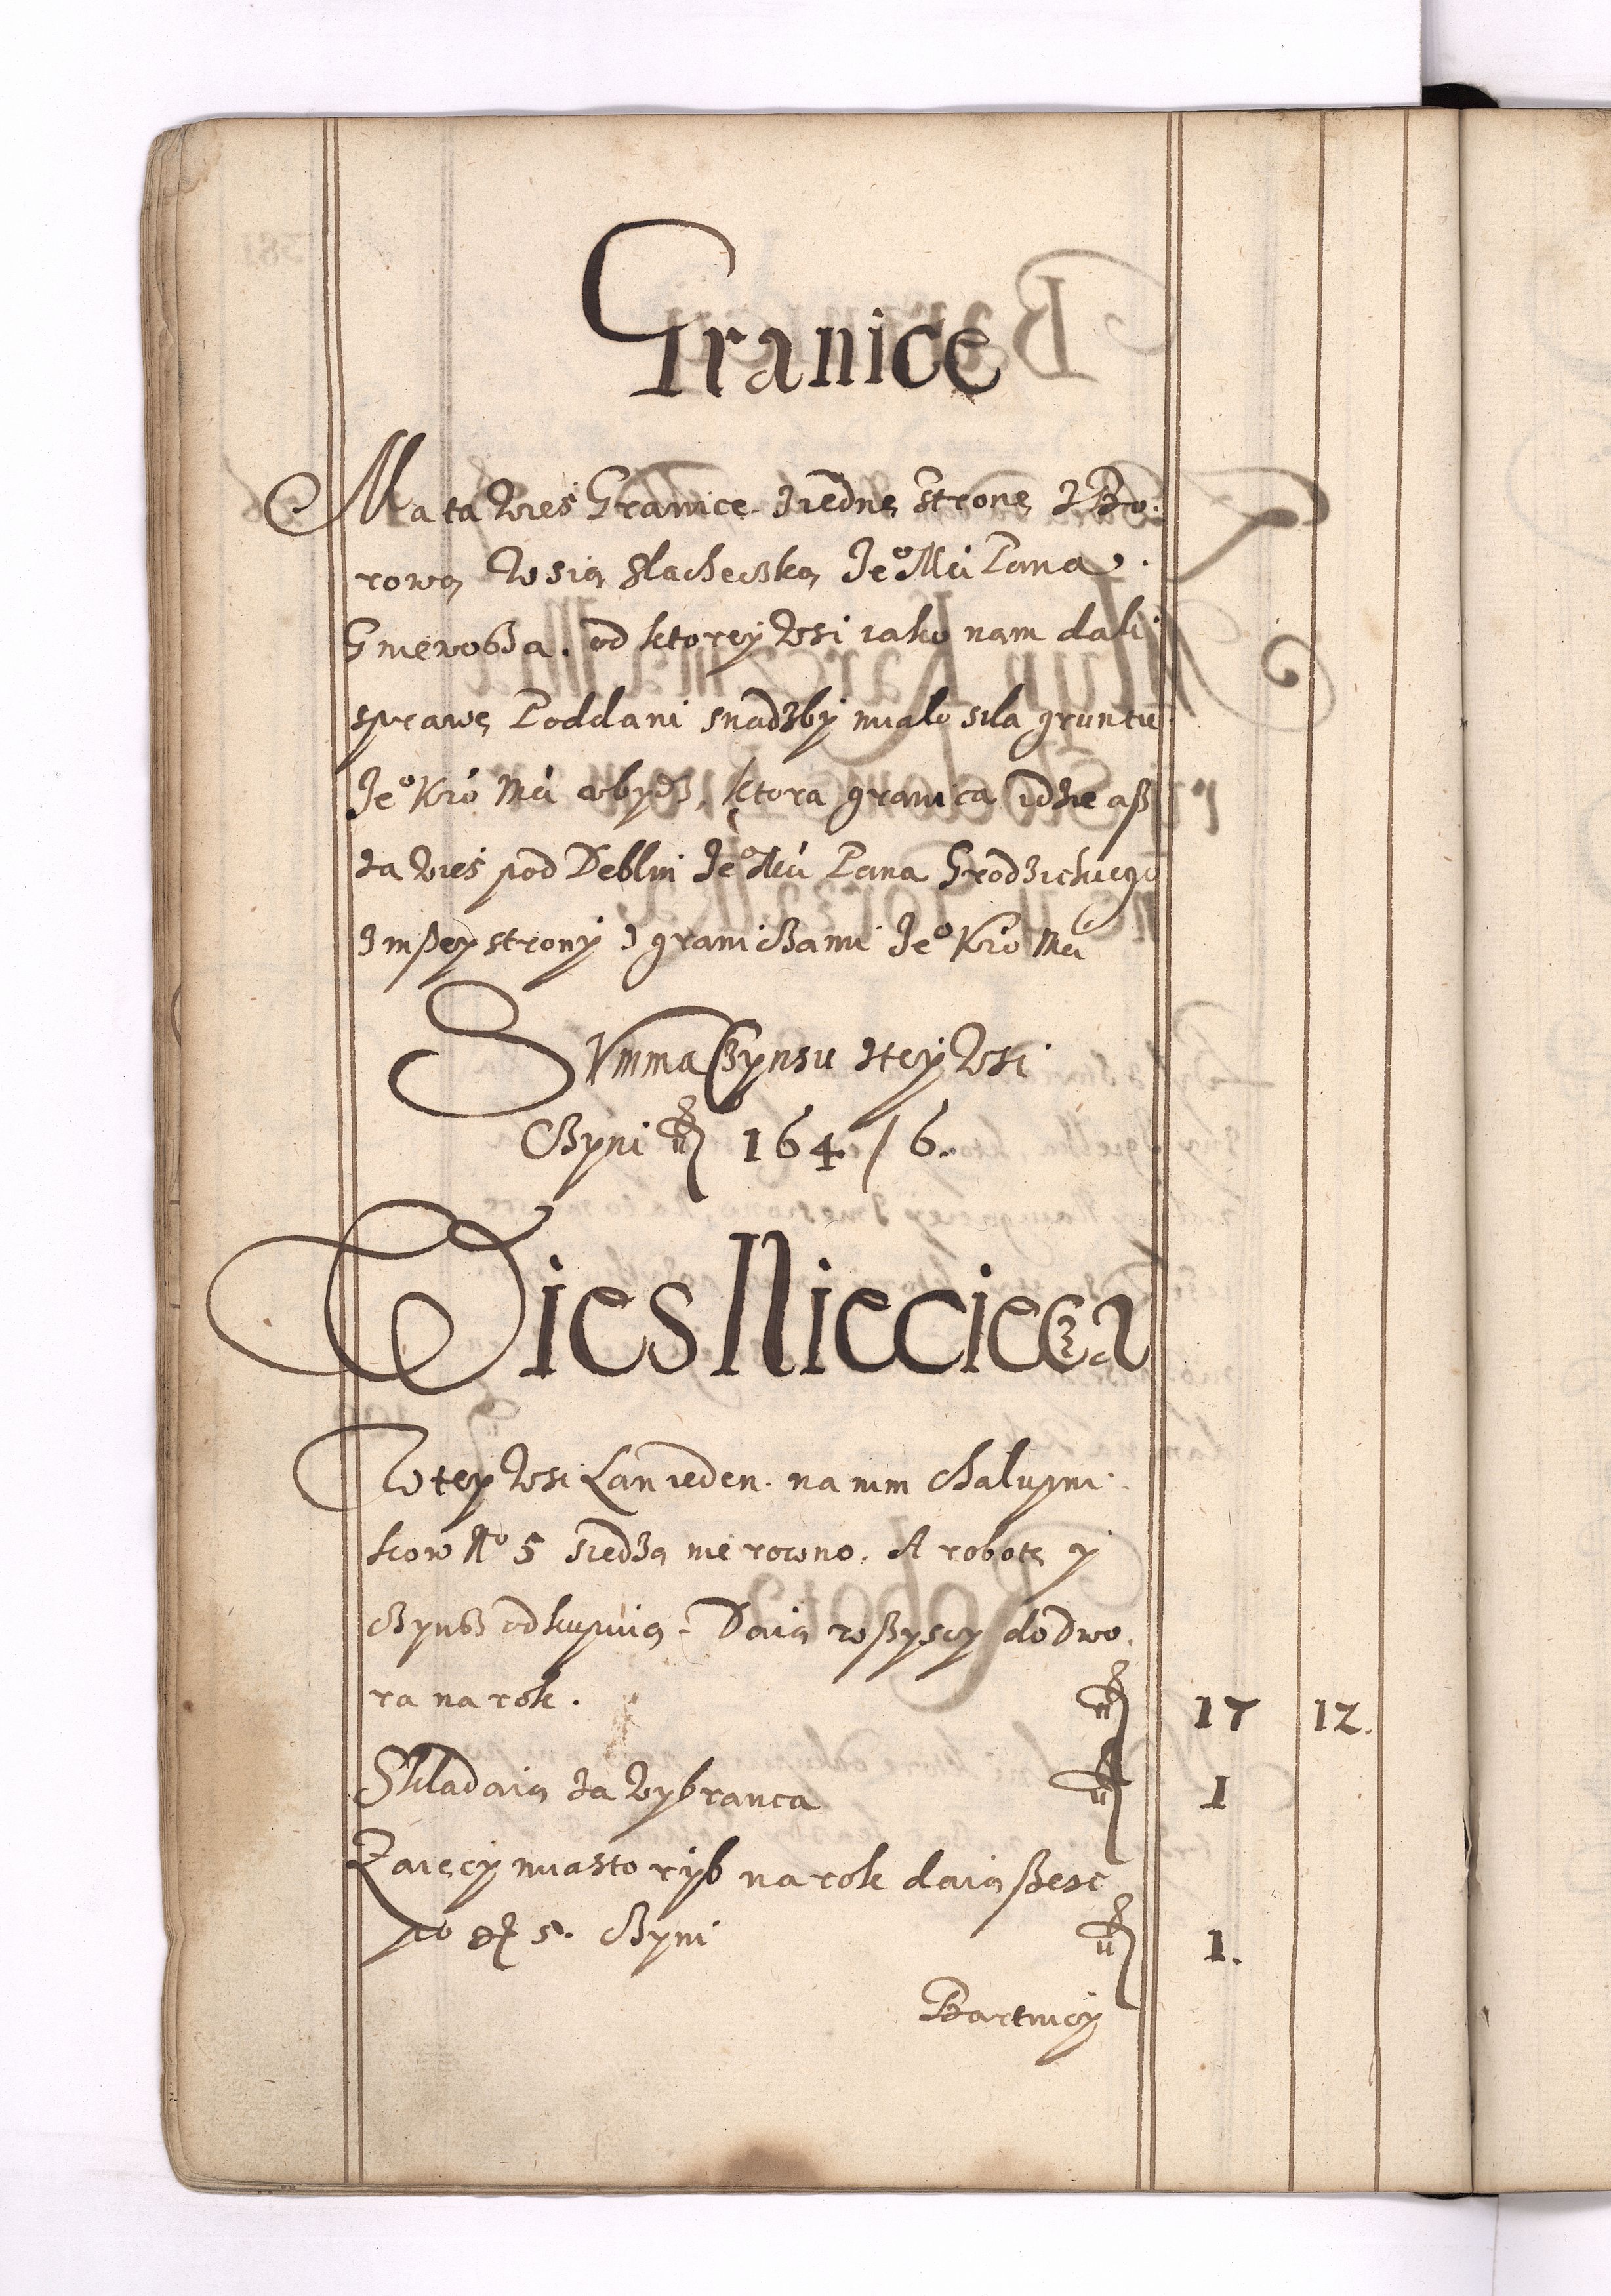 Granice
Ma ta wieś Granice z iedne strone z Bo:
rową wsią slachecską Je° Mći Pana
Gniewosza. od ktorey wsi iako nam dali
sprawę Poddani snadzby miało siła gruntu
Je° Kró Mći ubydz, ktora granica idzie asz
za wieś pod Deblin Je° Mći Pana Grodzickiego
Z inszey strony z graniczami Je° Kró Mći
Summa Czynsu z tey wsi
Czyni fl 164 / 6.
Wies Niecieca
W tey wsi Łan ieden. na nim chałupni:
kow N° 5 siedzą nie rowno. A robotę y
czynsz odkupuią. Daią wszyscy do Dwo.
ra na rok. fl 17 12.
Składaią za wybranca fl 1
Zaięcy miasto ryb na rok daią szesc
po gr 5. Czyni fl 1.
Bartnicy